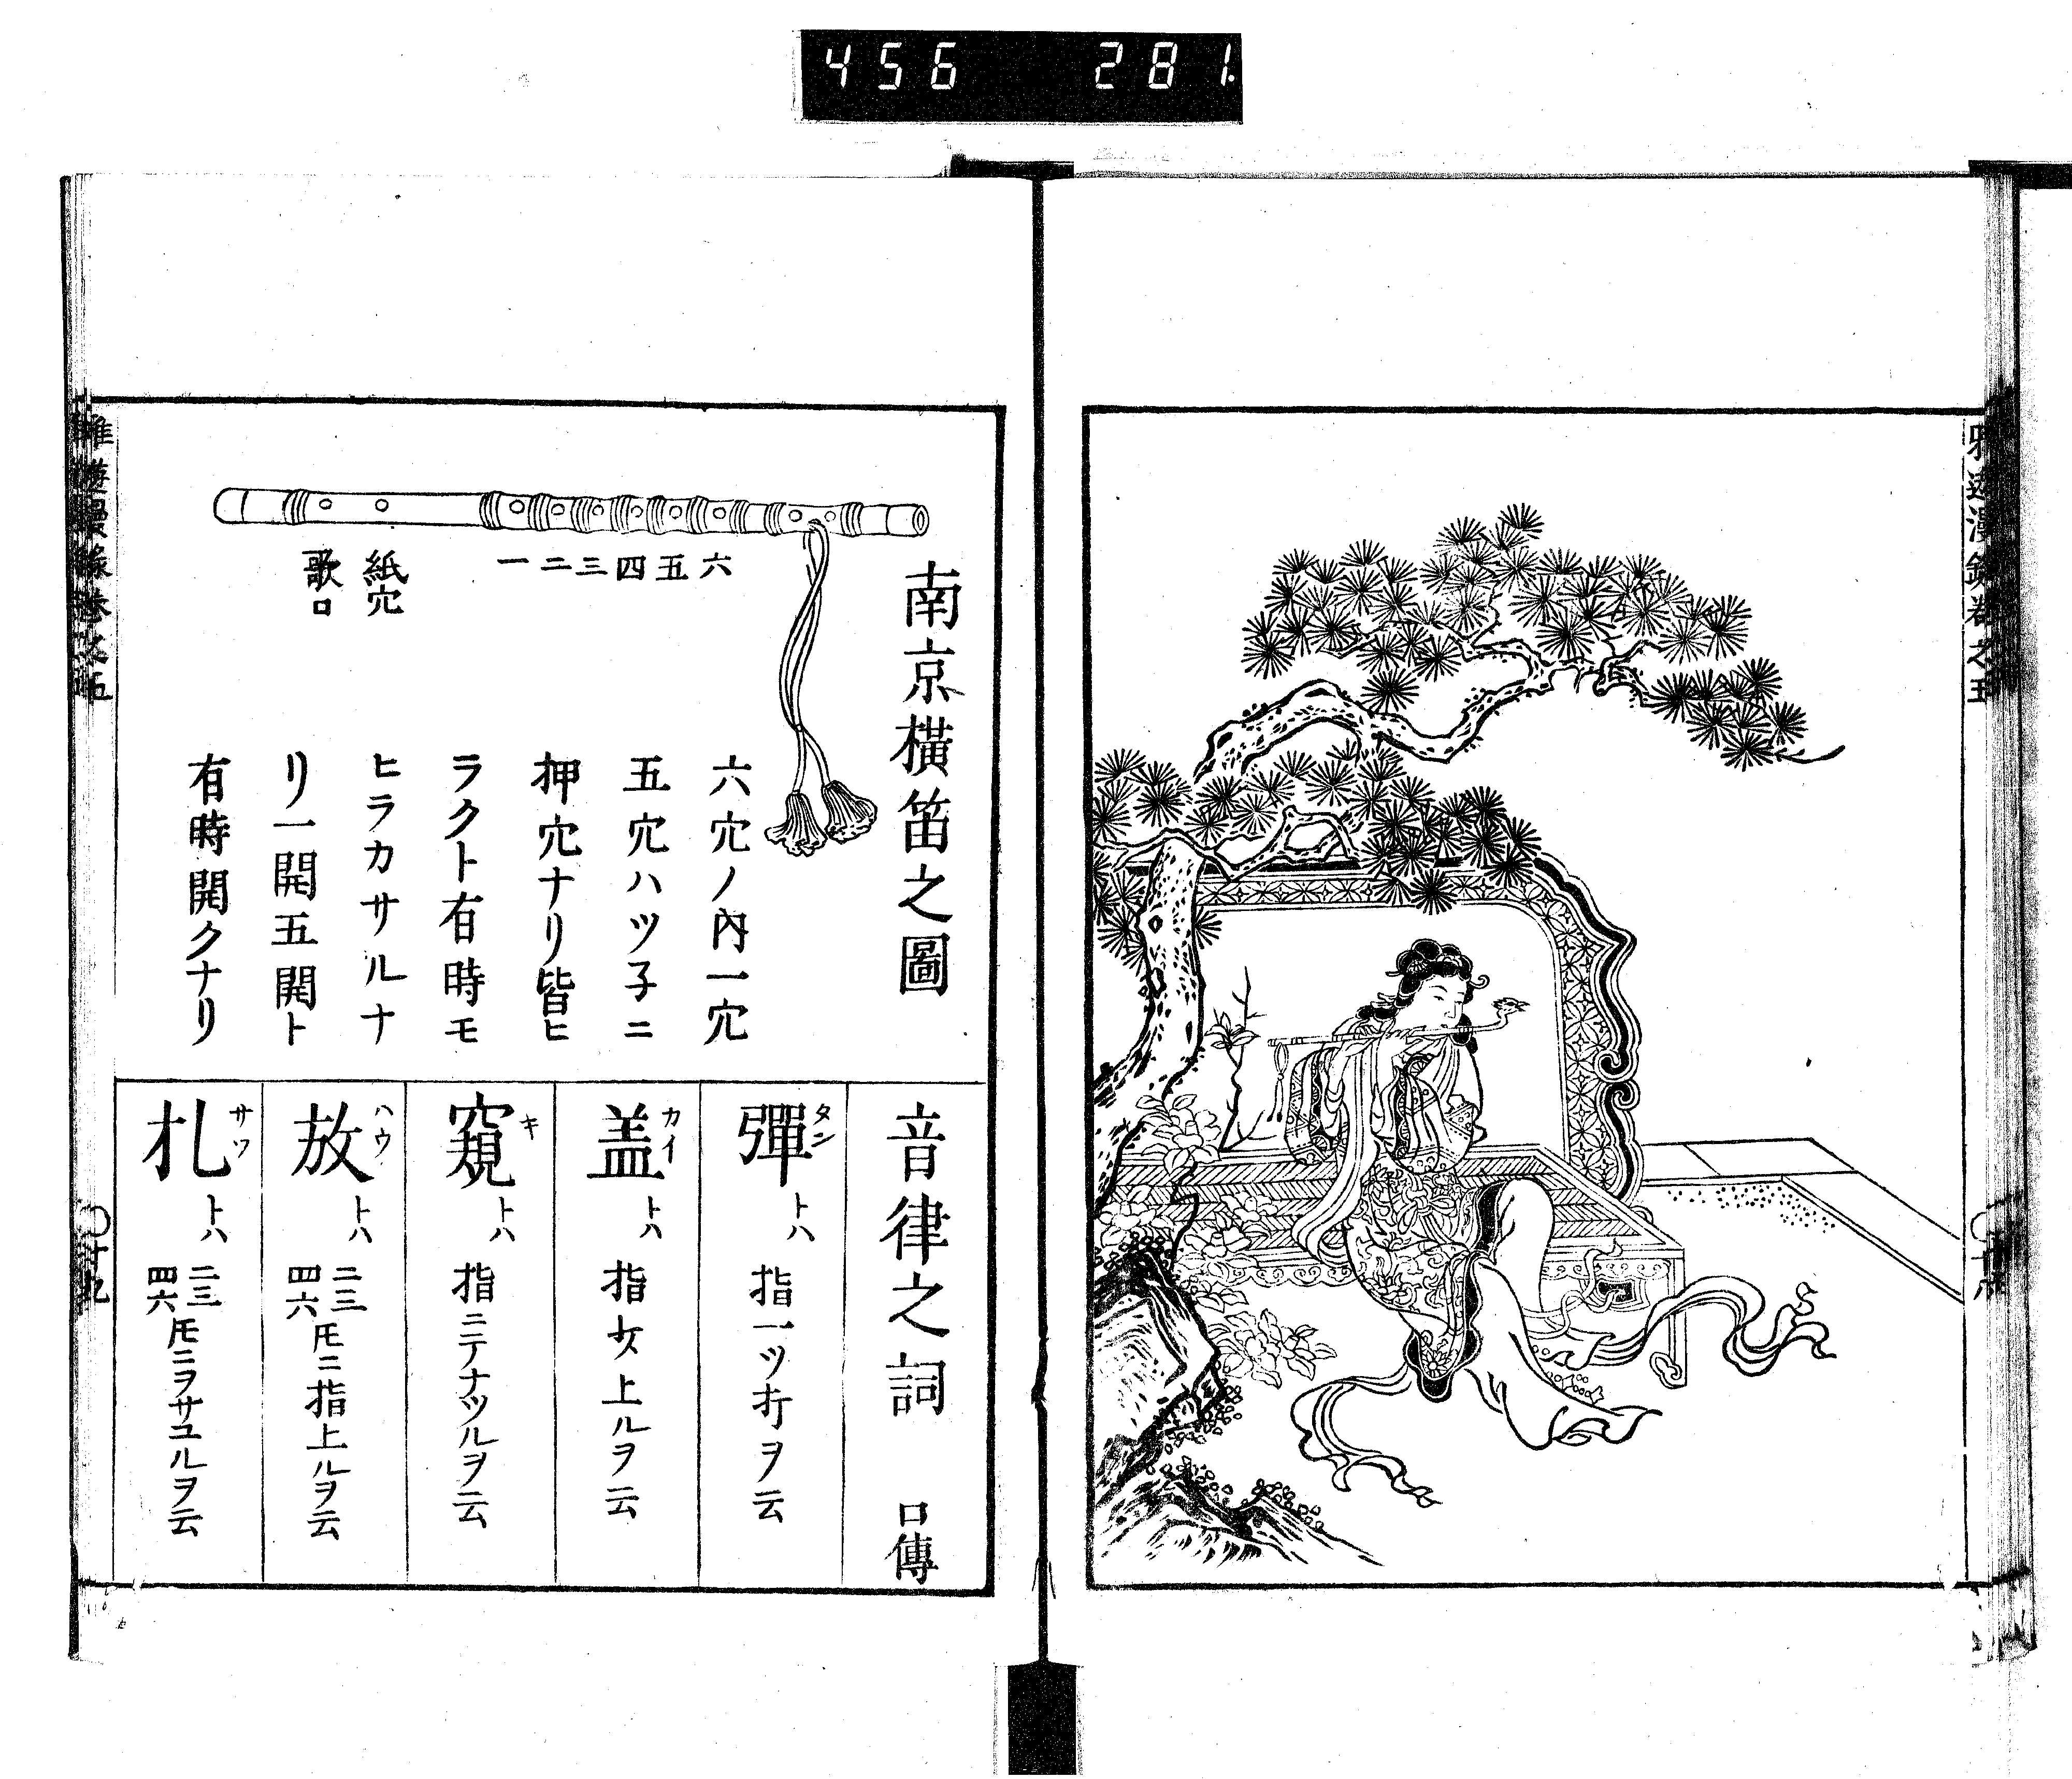 456 281
南京橫笛之圖
六五四三二一
紙穴
歌口
六穴ノ內一穴
五穴ハツ子ニ
押穴ナリ皆ヒ
ラクト有時モ
ヒラカサルナ
リ一開五開ト
有時開クナリ
音律之詞 口傳
彈タントハ 指一ツ打ヲ云
盖カイトハ 指上ルヲ云
窺キトハ 指ニテナツルヲ云
放ハウトハ 二三四六𪜈ニ指上ルヲ云
札サツトハ 二三四六𪜈ニヲサユルヲ云
雅遊漫錄卷之五
〇十九